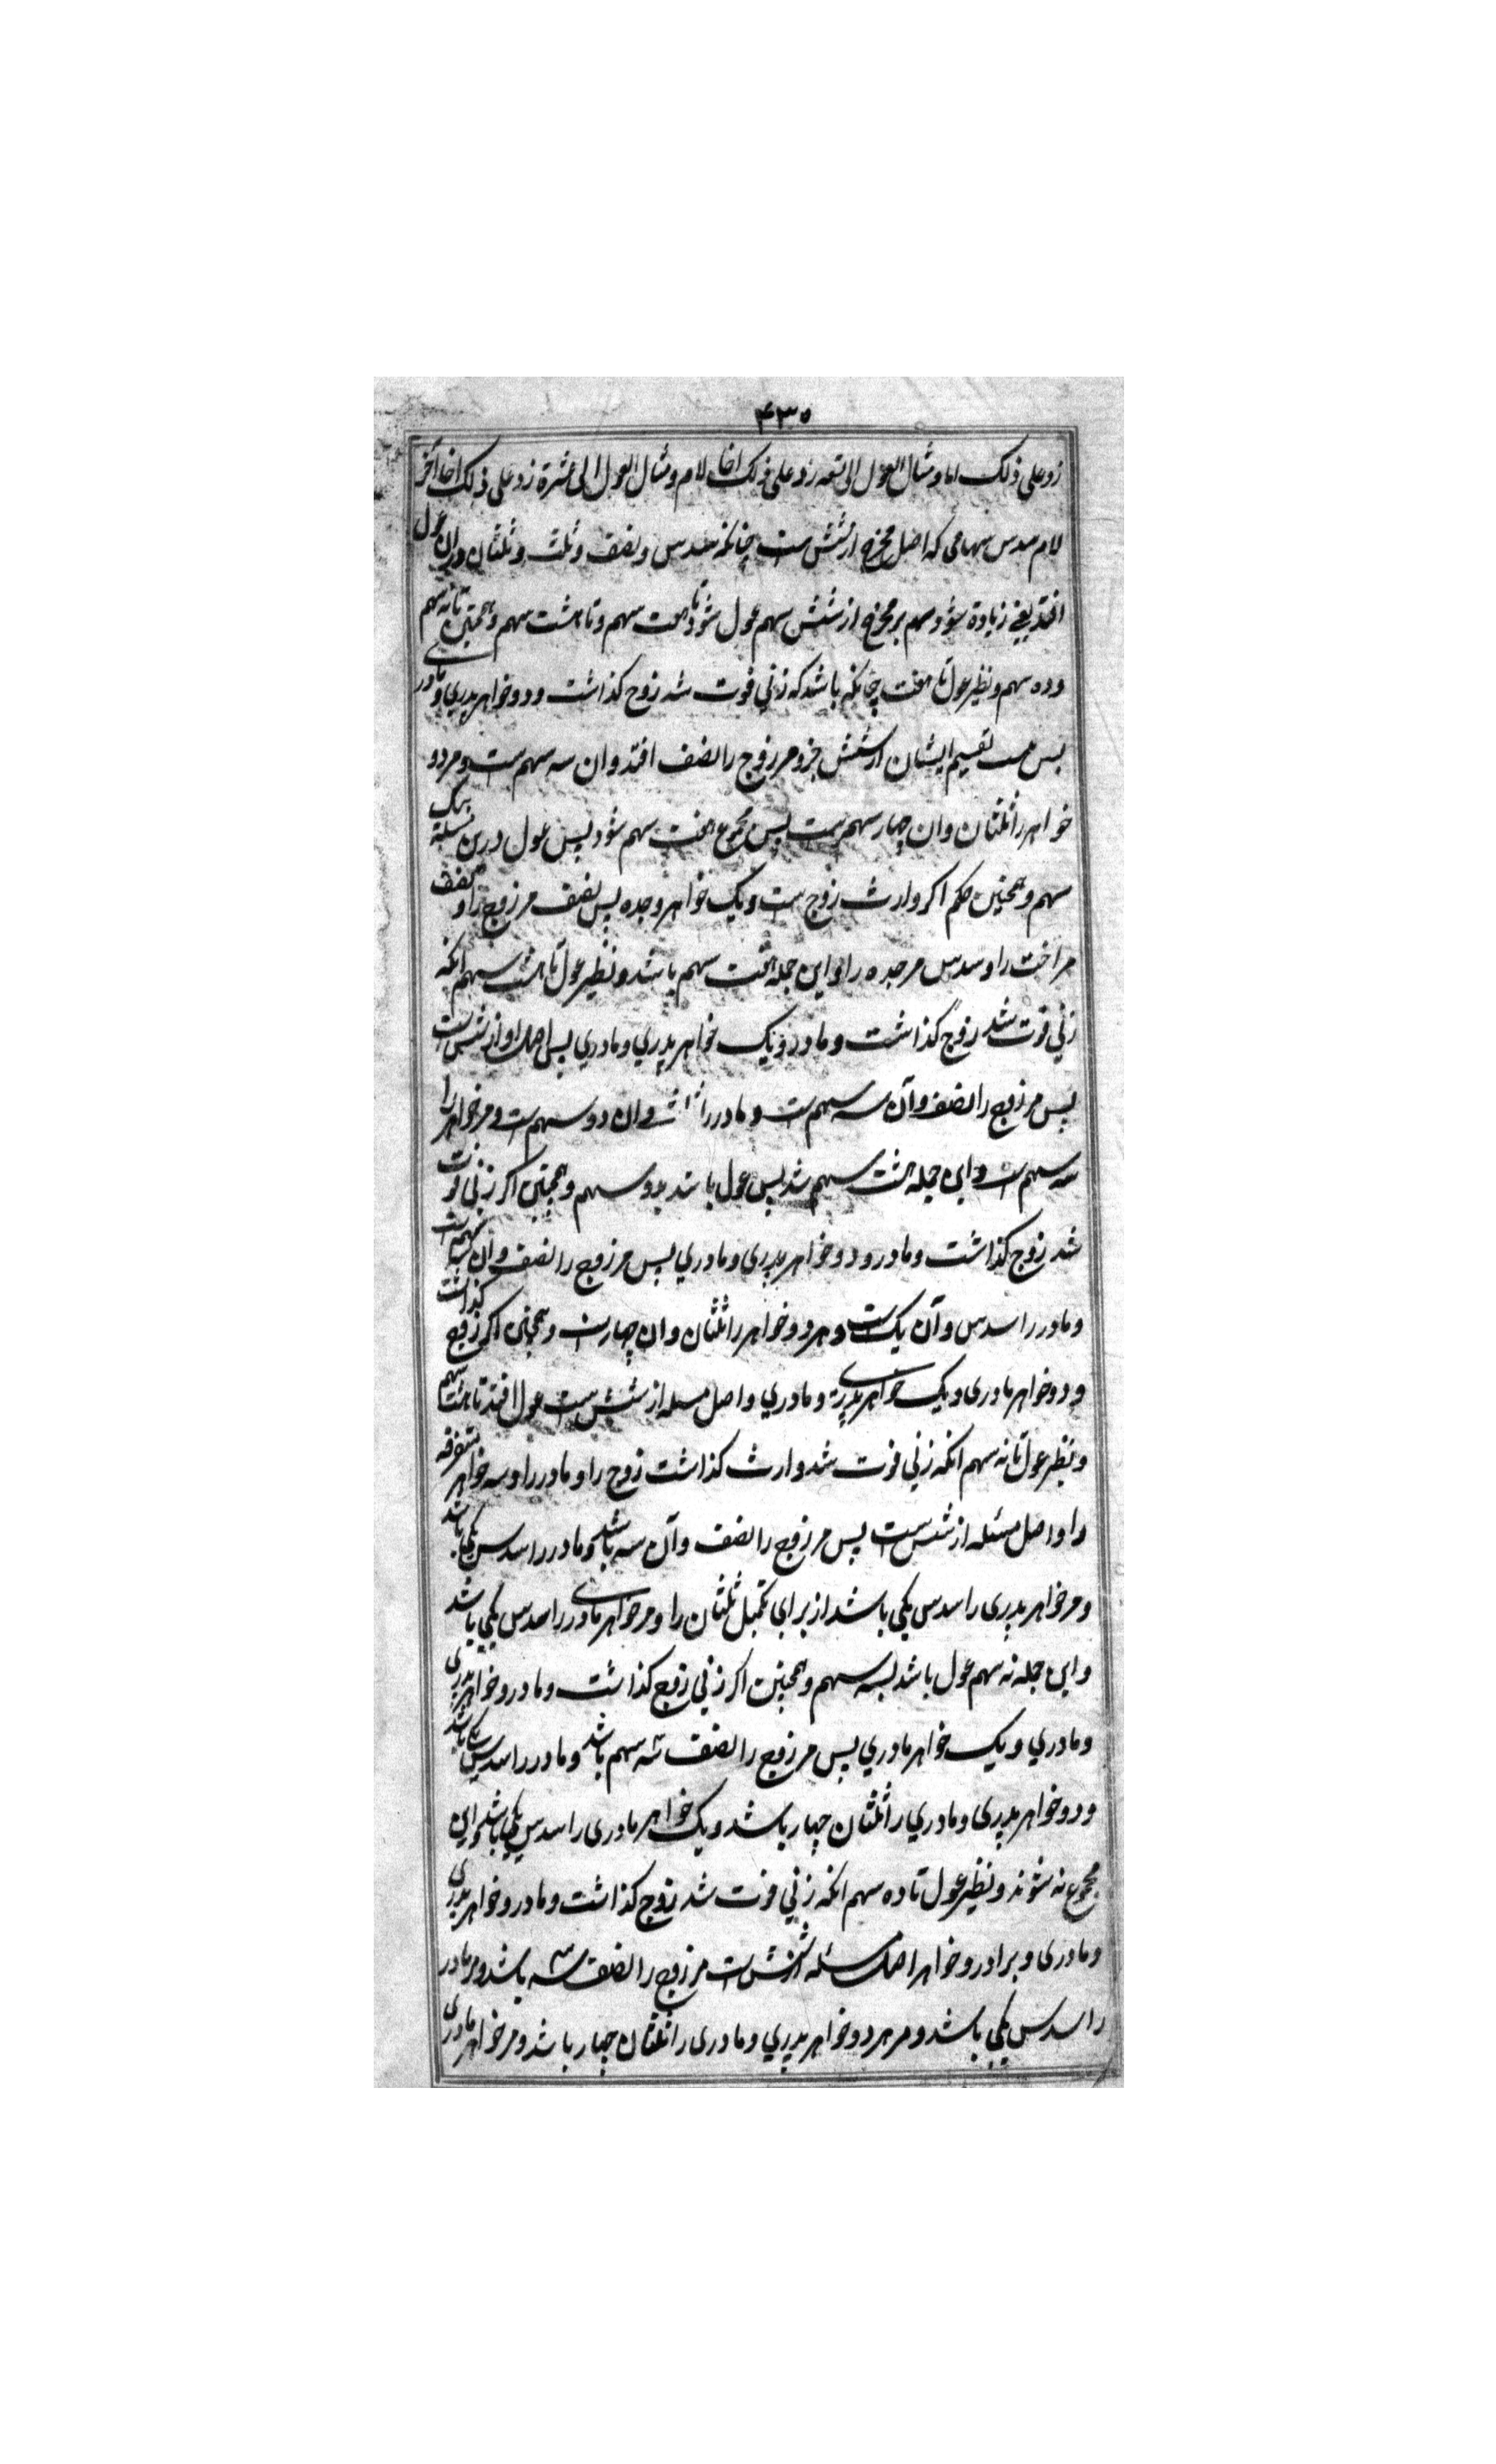 ۴۳۵
زد علی ذلک اما و مثال العول الی تسعه زد علی ذلک اخا لام و مثال العول الی عشرة زد علی ذلک اخا آخر
لام سدس سهامی که اصل مخرج از شش ست چنانکه سدس و نصف و ثلث و ثلثان دران عول
افتد یعنی زیادة شود سهم بر مخرج از شش سهم عول شود تا هفت سهم و تا هشت سهم و همچنین تا نه سهم
و ده سهم و نظیر عول تا هفت چنانکه باشد که زنی فوت شد زوج کذاشت و دو خواهر پدری و مادری
پس ست تقسیم ایشان از شش جزو مر زوج را نصف افتد و ان سه سهم ست و مر دو
خواهر را ثلثان و ان چهار سهم ست پس مجموع هفت سهم شود پس عول درین مسئله بیک
سهم و همچنین حکم اکر وارث زوج ست و یک خواهر و جده پس نصف مر زوج را و نصف
مر اخت را و سدس مر جده را و این جمله هفت سهم باشد و نظیر عول تا هشت سهم انکه
زنی فوت شد زوج کذاشت و مادر و یک خواهر پدری و مادری پس اصل او از شش ست
پس مر زوج را نصف و آن سه سهم ست و مادر را ثلث و ان دو سهم ست و مر خواهر را
سه سهم ست و این جمله هشت سهم شد پس عول باشد بدو سهم و همچنین اکر زنی فوت
شد زوج کذاشت و مادر و دو خواهر پدری و مادری پس مر زوج را نصف و آن سه سهم ست
و مادر را سدس و آن یک ست و هر دو خواهر را ثلثان و ان چهار ست و همچنین اکر زوج کذاشت
و دو خواهر مادری و یک خواهر پدری و مادری و اصل مسله از شش ست عول افتد تا هشت سهم
و نظیر عول تا نه سهم انکه زنی فوت شد وارث کذاشت زوج را و مادر را و سه خواهر متفرقه
را و اصل مسئله از شش ست پس مر زوج را نصف و آن سه باشد و مادر را سدس یکی باشد
و مر خواهر پدری را سدس یکی باشد از برای تکمیل ثلثان را و مر خواهر مادری را سدس یکی باشد
و این جمله نه سهم عول باشد بسه سهم و همچنین اکر زنی زوج کذاشت و مادر و خواهر پدری
و مادری و یک خواهر مادری پس مر زوج را نصف سه سهم باشد و مادر را سدس یکی باشد
و دو خواهر پدری و مادری را ثلثان چهار باشد و یک خواهر مادری را سدس یکی باشد و این
مجموع نه شوند و نظیر عول تا ده سهم انکه زنی فوت شد زوج کذاشت و مادر و خواهر پدری
و مادری و برادر و خواهر اصل مسئله از شش ست مر زوج را نصف سه باشد و مر مادر
را سدس یکی باشد و مر هر دو خواهر پدری و مادری را ثلثان چهار باشد و مر خواهر مادری